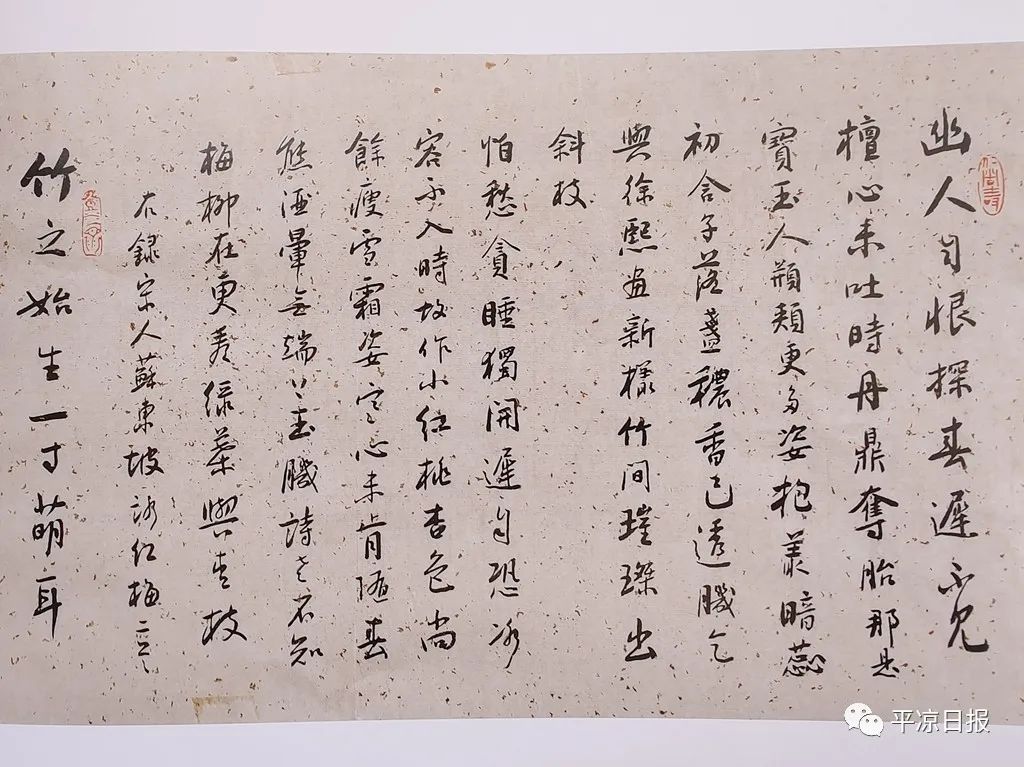 幽人自恨探春遲不見
檀心未吐時丹鼎奪胎那是
寶玉人頩頰更多姿抱叢暗蕊
初含子落盞穠香已透肌乞
與徐熙畫新樣竹間璀璨出
斜枝
怕愁貪睡獨開遲自恐冰
容不入時故作小红桃杏色尚
餘瘦雪霜姿寒心未肯隨春
態酒暈無端上玉肌詩老不知
梅柳在更看绿葉與青枝
右録宋人蘇東坡詠红梅
竹之始生一寸萌耳
平凉日报